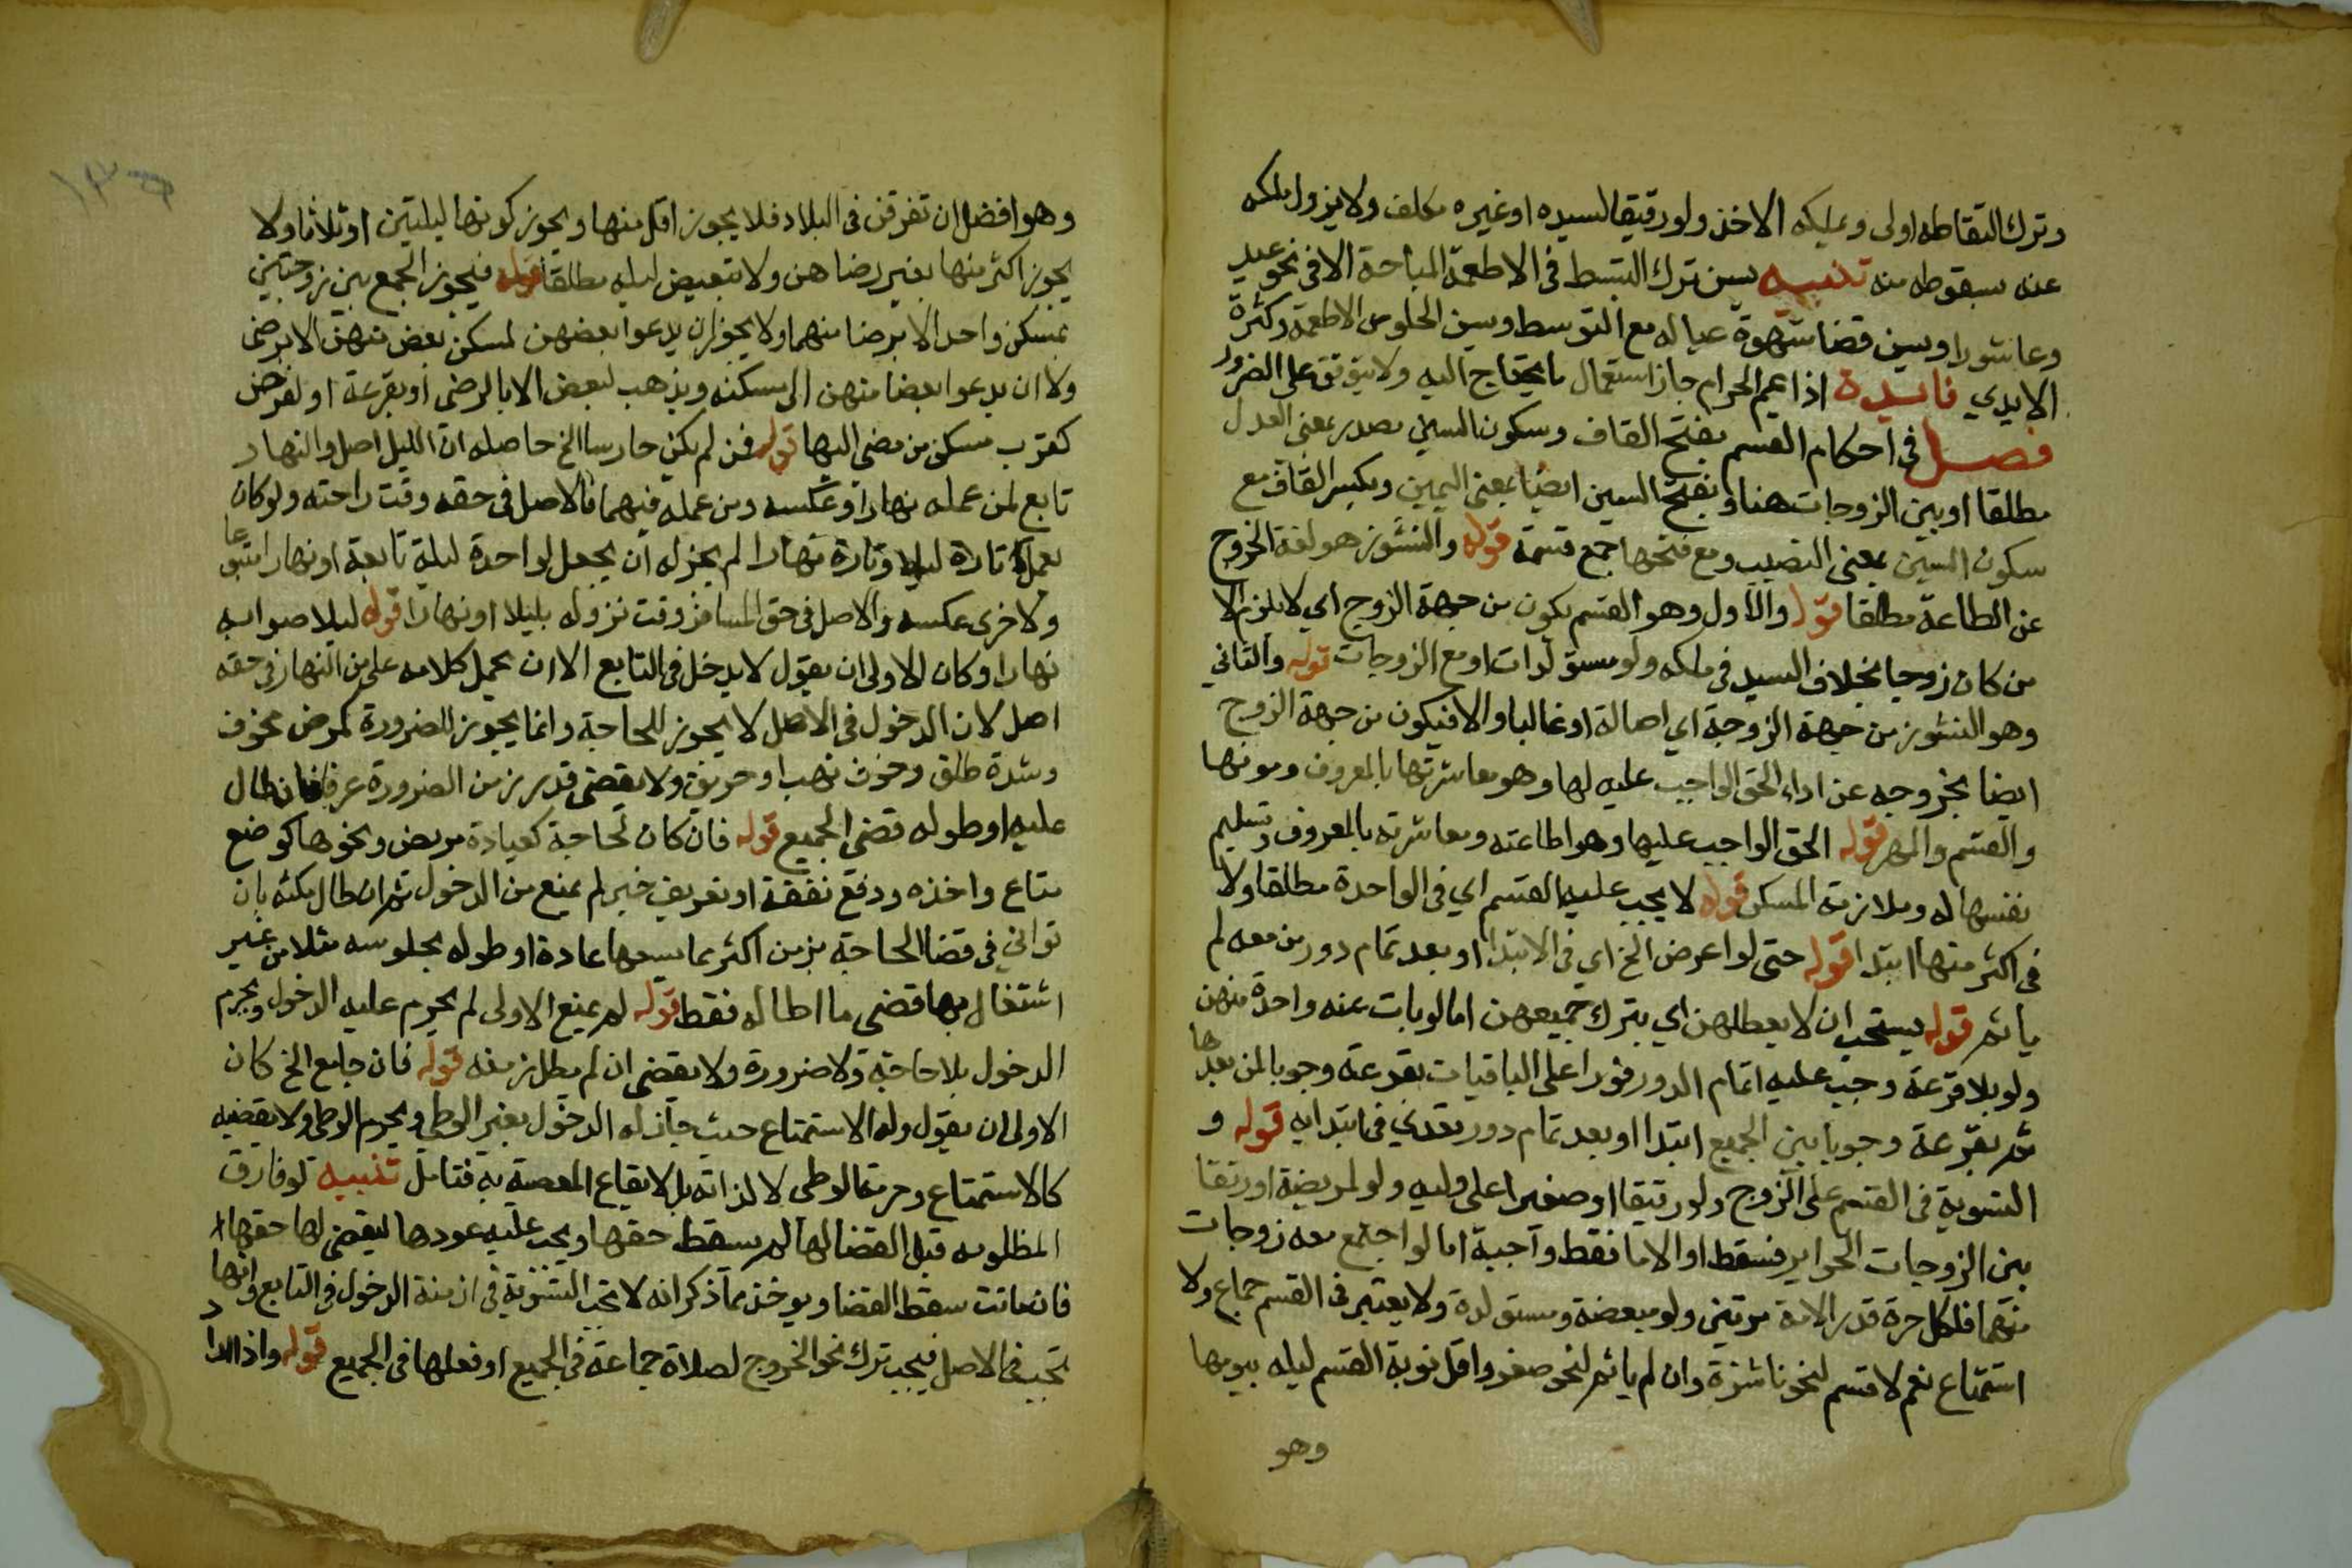 وترك التقاطه اولى ويملكه الاخذ ولو رقيقا لسيده او غيره مكلف ولا يزول ملكه
عنه بسقوطه منه تنبيه يسن ترك التبسط في الاطعمة المباحة الا في نحو عيد
وعاشورا ويسن قضا شهوة عياله مع التوسط ويسن الحلو من الاطعمة وكثرة
الايدي فايدة اذا عم الحرام جاز استعمال ما يحتاج اليه ولا يتوقف على الضرور
فصل في احكام القسم بفتح القاف وسكون السين مصدر بمعنى العدل
مطلقا او بين الزوجات هنا وبفتح السين ايضا بمعنى اليمين وبكسر القاف مع
سكون السين بمعنى النصيب ومع فتحها جمع قسمة قوله والنشوز هو لغة الخروج
عن الطاعة مطلقا قوله والاول وهو القسم يكون من جهة الزوج اي لا يلزم الا
من كان زوجا بخلاف السيد في ملكه ولو مستولدات او مع الزوجات قوله والثاني
وهو النشوز من جهة الزوجة اي اصالة او غالبا والا فيكون من جهة الزوج
ايضا بخروجه عن اداء الحق الواجب عليه لها وهو معاشرتها بالمعروف ومونها
والقسم والمهر قوله الحق الواجب عليها وهو اطاعته ومعاشرته بالمعروف وتسليم
نفسها له وملازمة المسكن قوله لا يجب عليه القسم اي في الواحدة مطلقا ولا
في اكثر منها ابتدا قوله حتى لو اعرض الخ اي في الابتدا او بعد تمام دور من معه لم
ياثم قوله يستحب ان لا يعطلهن اي بترك جميعهن اما لو بات عنه واحدة منهن
ولو بلا قرعة وجب عليه اتمام الدور فورا على الباقيات بقرعة وجوبا لمن بعدها
ثم بقرعة وجوبا بين الجميع ابتدا او بعد تمام دور تعدي في ابتدايه قوله و
التسوية في القسم على الزوج ولو رقيقا او صغيرا على وليه ولو لمريضة او رتقا
بين الزوجات الحراير فسقط او الاما فقط واجبة اما لو اجتمع معه زوجات
منهما فلكل حرة قدر الامة مرتين ولو مبعضة ومستولدة ولا يعتبر في القسم جماع ولا
استمتاع نعم لا قسم لنحو ناشزة وان لم ياثم لنحو صغر واقل نوبة القسم ليله بيومها
وهو
وهو افضل ان تفرقن في البلاد فلا يجوز اقل منها ويجوز كونها ليلتين او ثلاثا ولا
يجوز اكثر منها بغير رضاهن ولا تبعيض ليله مطلقا قوله فيجوز الجمع بين زوجتين
بمسكن واحد الا برضا منهما ولا يجوز ان يدعوا بعضهن لمسكن بعض منهن الا برضى
ولا ان يدعوا بعضا منهن الى مسكنه ويذهب لبعض الا بالرضى او بقرعة او لغرض
كقرب مسكن من مضى اليها قوله فمن لم يكن حارسا الخ حاصله ان الليل اصل والنهار
تابع لمن عمله نهارا وعكسه ومن عمله فيهما فالاصل في حقه وقت راحته ولو كان
يعمل تارة ليلا وتارة نهارا لم يجز له ان يجعل لواحدة ليلة تابعة او نهارا متبوعا
ولاخرى عكسه والاصل في حق المسافر وقت نزوله بليلا او نهارا قوله ليلا صوابه
نهارا وكان الاولى ان يقول لا يدخل في التابع الا ان يحمل كلامه على من النهار في حقه
اصل لان الدخول في الاصل لا يجوز للحاجة وانما يجوز للضرورة كمرض مخوف
وشدة طلق وخوف نهب او حريق ولا يقضى قدر زمن الضرورة عرفا فان طال
عليه او طوله قضى الجميع قوله فان كان لحاجة كعيادة مريض ونحوها كوضع
متاع واخذه ودفع نفقة او تعريف خبر لم يمنع من الدخول ثم ان طال مكثه بان
تواني في قضا الحاجة بزمن اكثر مما يسعها عادة او طوله بجلوسه مثلا من غير
اشتغال بها قضى ما اطاله فقط قوله لم يمنع الاولى لم يحرم عليه الدخول ويحرم
الدخول بلا حاجة ولا ضرورة ولا يقضى ان لم يطل زمنه قوله فان جامع الخ كان
الاولى ان يقول وله الاستمتاع حيث جاز له الدخول بغير الوطي ويحرم الوطي ولا يقضيه
كالاستمتاع وحرمة الوطي لا لذاته بل لايقاع المعصية به فتامل تنبيه لو فارق
المظلومه قبل القضا لها لم يسقط حقها ويجب عليه عودها ليقضي لها حقها
فان ماتت سقط القضا ويوخذ مما ذكر انه لا تجب التسوية في ازمنة الدخول في التابع وانها
تجب في الاصل فيجب ترك نحو الخروج لصلاة جماعة في الجميع او فعلها في الجميع قوله واذا